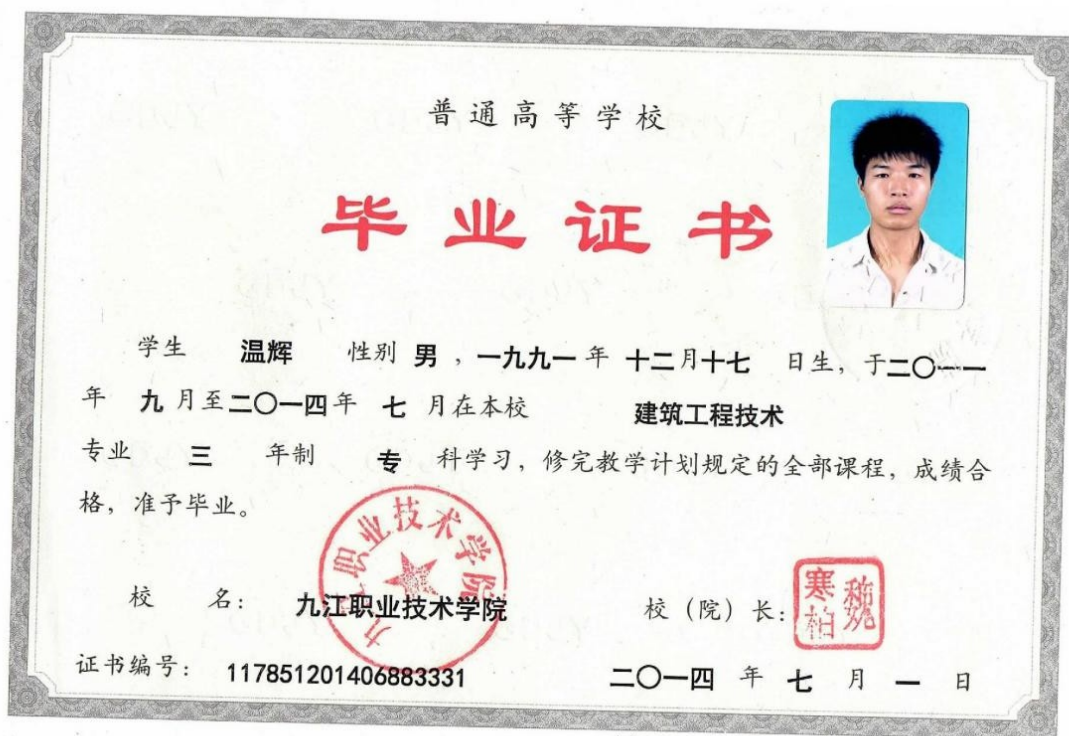 普通高等学校
毕业证书
学生 温辉 性别 男，一九九一年 十二月十七 日生，于二〇一一
年 九 月至二〇一四年 七 月在本校 建筑工程技术
专业 三 年制 专 科学习，修完教学计划规定的全部课程，成绩合
格，准予毕业。
九江职业技术学院
校 名： 九江职业技术学院 校（院）长：
证书编号： 117851201406883331 二〇一四 年 七 月 一 日